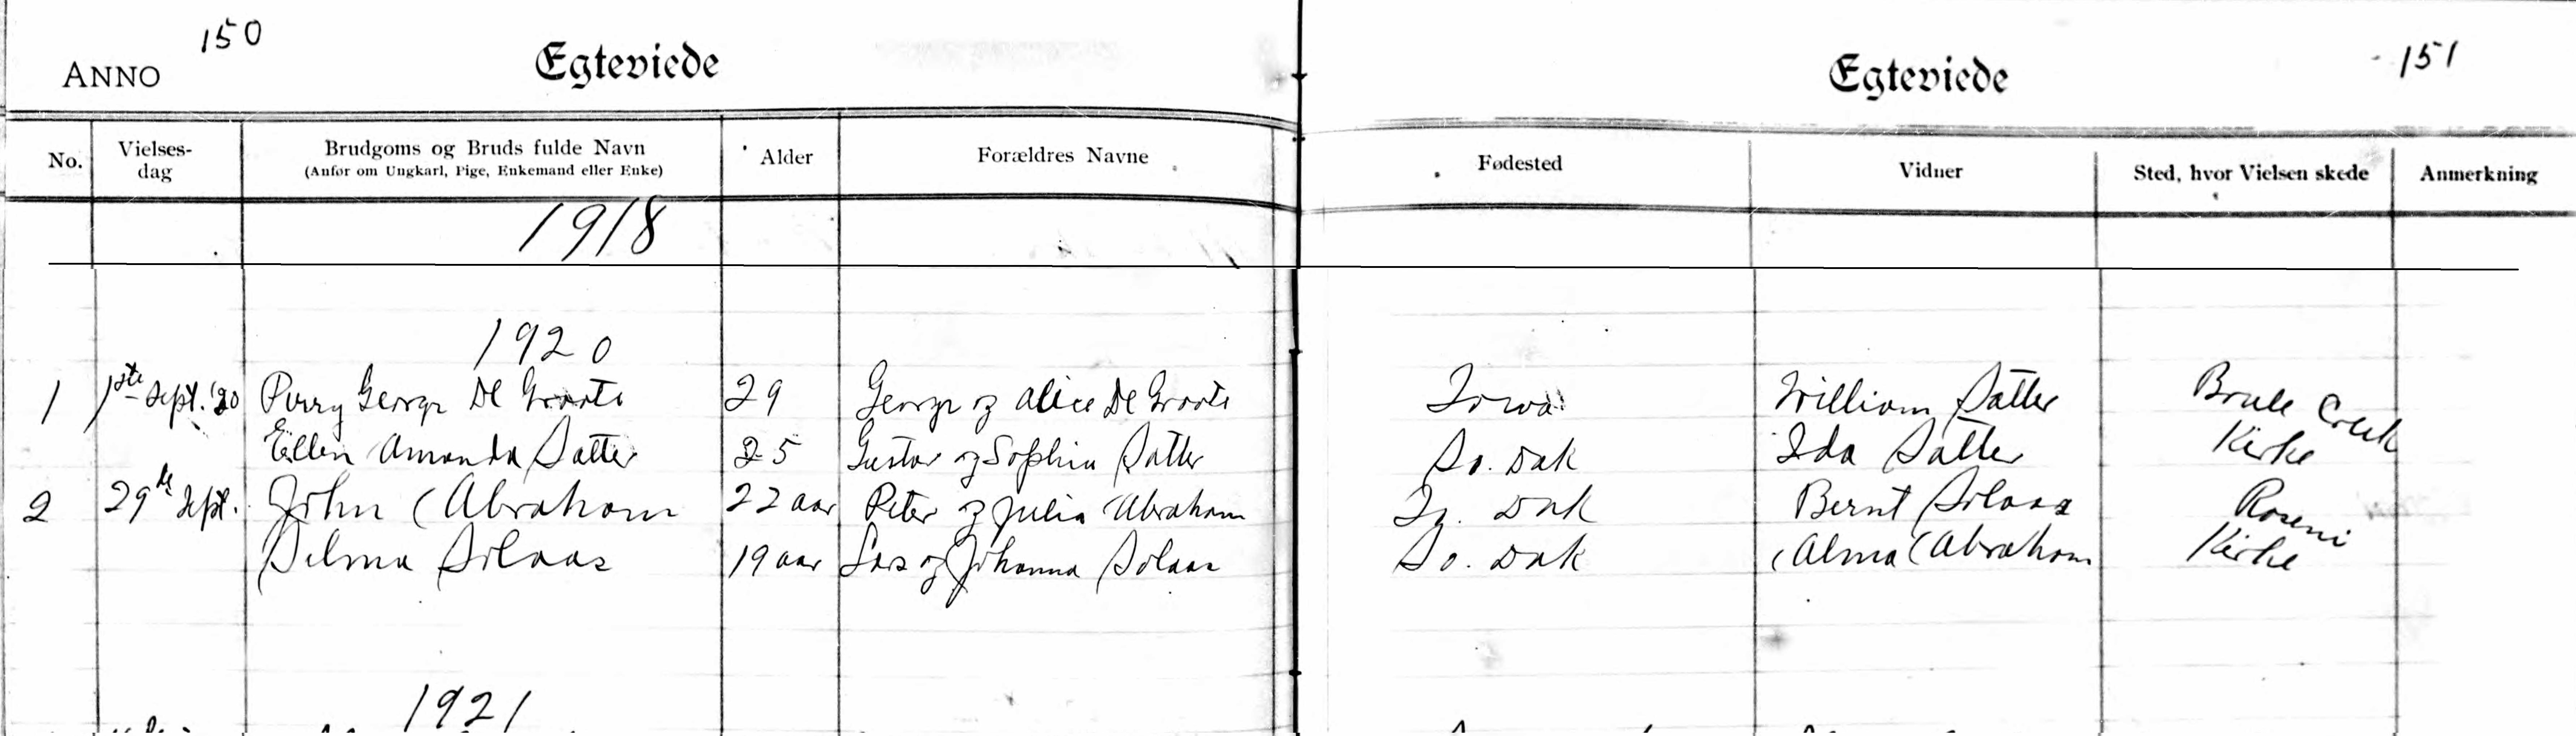 150
ANNO Egteviede
Egteviede 151
No. Vielses-dag Brudgoms og Bruds fulde Navn (Anfør om Ungkarl, Pige, Enkemand eller Enke) Alder Forældres Navne Fødested Vidner Sted, hvor Vielsen skede Anmerkning
1918
1920
1 1ste Sept. '20 Perry George De Groote 29 George og Alice De Groote Iowa William Satter Brule Creek
Ellen Amanda Satter 25 Gustav og Sophia Satter So. Dak Ida Satter Kirke
2 29de Sept. John Abraham 22 aar Peter og Julia Abraham So. Dak Bernt Solaas Roseni
Selma Solaas 19 aar Lars og Johanna Solaas So. Dak Alma Abraham Kirke
1921